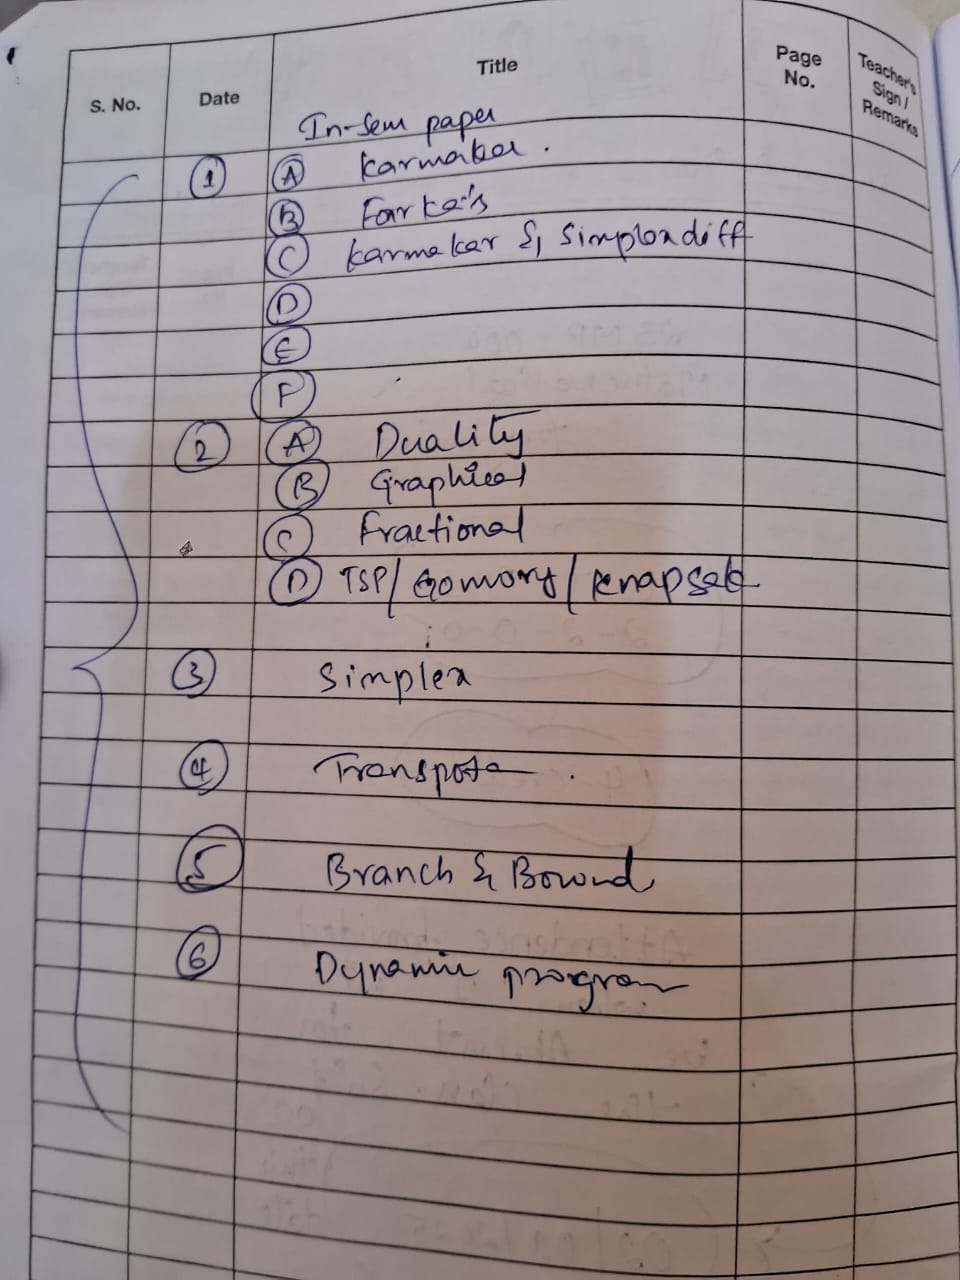 S. No.
Date
Title
Page No.
Teacher's Sign / Remarks
In-Sem paper
1 A Karmaker.
B Farka's
C Karmakar & Simplex diff
D
E
F
2 A Duality
B Graphical
C Fractional
D TSP/ Gomory/ Knapsak
3 Simplex
4 Transpota
5 Branch & Bound
6 Dynamic program